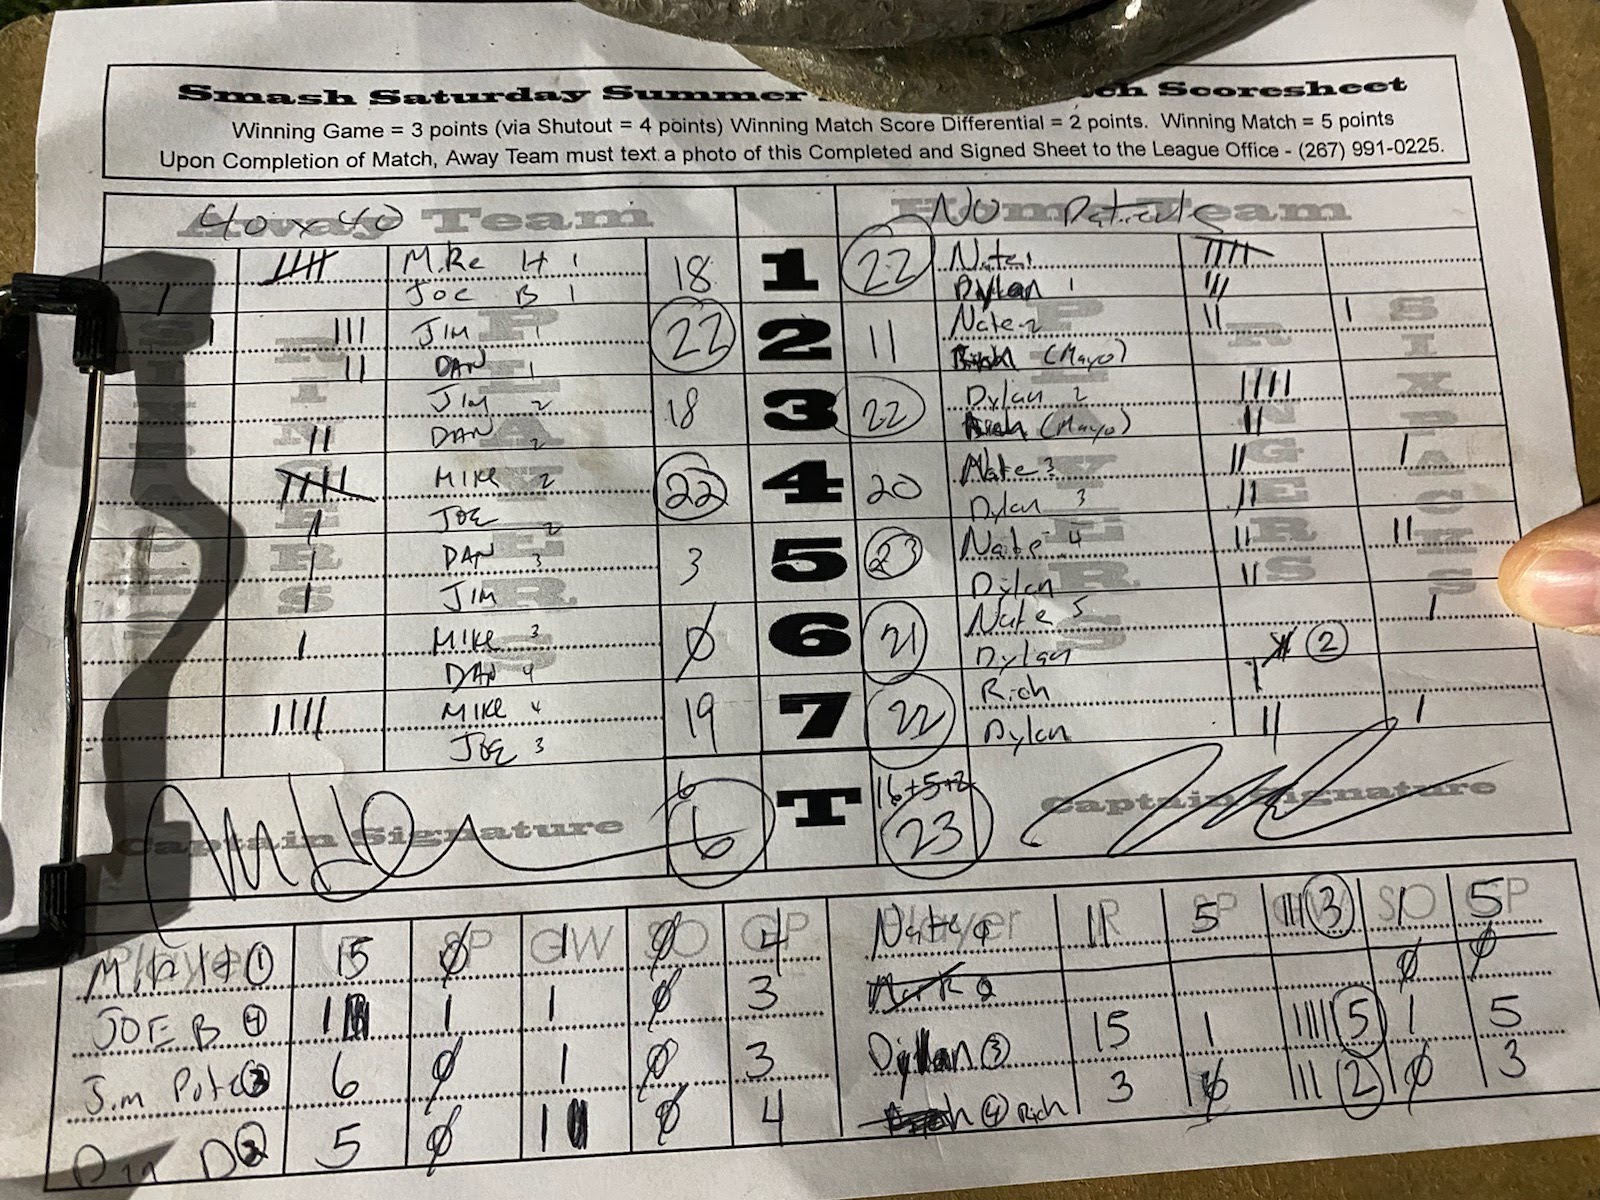 Smash Saturday Summer ch Scoresheet
Winning Game = 3 points (via Shutout = 4 points) Winning Match Score Differential = 2 points. Winning Match = 5 points
Upon Completion of Match, Away Team must text a photo of this Completed and Signed Sheet to the League Office - (267) 991-0225.
Away Team Home Team
40 x 40 NO
MIKE H 1 18 1 22 Nate 1
JOE B 1 Dylan 1
JIM 1 22 2 11 Nate 2
DAN 1 (Mayo)
JIM 2 18 3 22 Dylan 2
DAN 2 (Mayo)
MIKE 2 22 4 20 Nate 3
JOE 2 Dylan 3
DAN 3 3 5 23 Nate 4
JIM Dylan
MIKE 3 0 6 21 Nate 5
DAN 4 Dylan 2
MIKE 4 19 7 22 Rich
JOE 3 Dylan
6 T 16+5+2
Captain Signature 6 23 Captain Signature
Player R SP GW SO GP Player R SP GW SO GP
Mike H 1 15 0 1 0 4 Nate 1 11 5 3 1 5
JOE B 4 1 1 0 3 0 0
Jim 3 6 0 1 0 3 Dyllan 3 15 1 5 1 5
Dan D 2 5 0 1 0 4 4 Rich 3 0 2 0 3